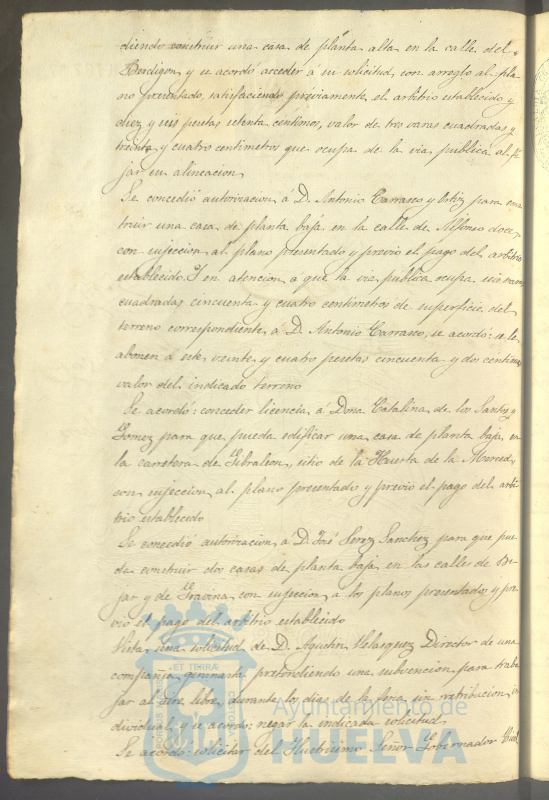 diendo construir una casa de planta alta en la calle del
Bordigon, y se acordó acceder á su solicitud, con arreglo al pla
no presentado, satisfaciendo préviamente el arbitrio establecido y
diez y seis pesetas setenta centimos, valor de tres varas cuadradas y
treinta y cuatro centimetros que ocupa de la via pública al fi
jar su alineacion
Se concedió autorizacion á D. Antonio Carrasco y Ortiz para cons
truir una casa de planta baja en la calle de Alfonso doce,
con sujeccion al plano presentado y previo el pago del arbitrio
establecido. Y en atencion á que la via pública ocupa seis varas
cuadradas cincuenta y cuatro centimetros de superficie del
terreno correspondiente á D. Antonio Carrasco, se acordó: se le
abonen á este veinte y cuatro pesetas cincuenta y dos centimos
valor del indicado terreno
Se acordó: conceder licencia á Doña Catalina de los Santos y
Gomez para que pueda edificar una casa de planta baja en
la carretera de Gibraleon, sitio de la Huerta de la Merced,
con sujeccion al plano presentado y previo el pago del arbi
trio establecido
Se concedió autorizacion á D. José Perez Sanchez para que pue
da construir dos casas de planta baja en las calles de Be
jar y de Gravina con sujeccion á los planos presentados y pre
vio el pago del arbitrio establecido
Vista una solicitud de D. Agustin Velasquez Director de una
compañia gimnasta pretendiendo una subvencion para traba
jar al aire libre, durante los dias de la feria sin retribucion in
dividual, y se acordó: negar la indicada solicitud.
Se acordó: solicitar del Ilustrisimo Señor Gobernador Civil
ET TERRÆ
Ayuntamiento de
HUELVA